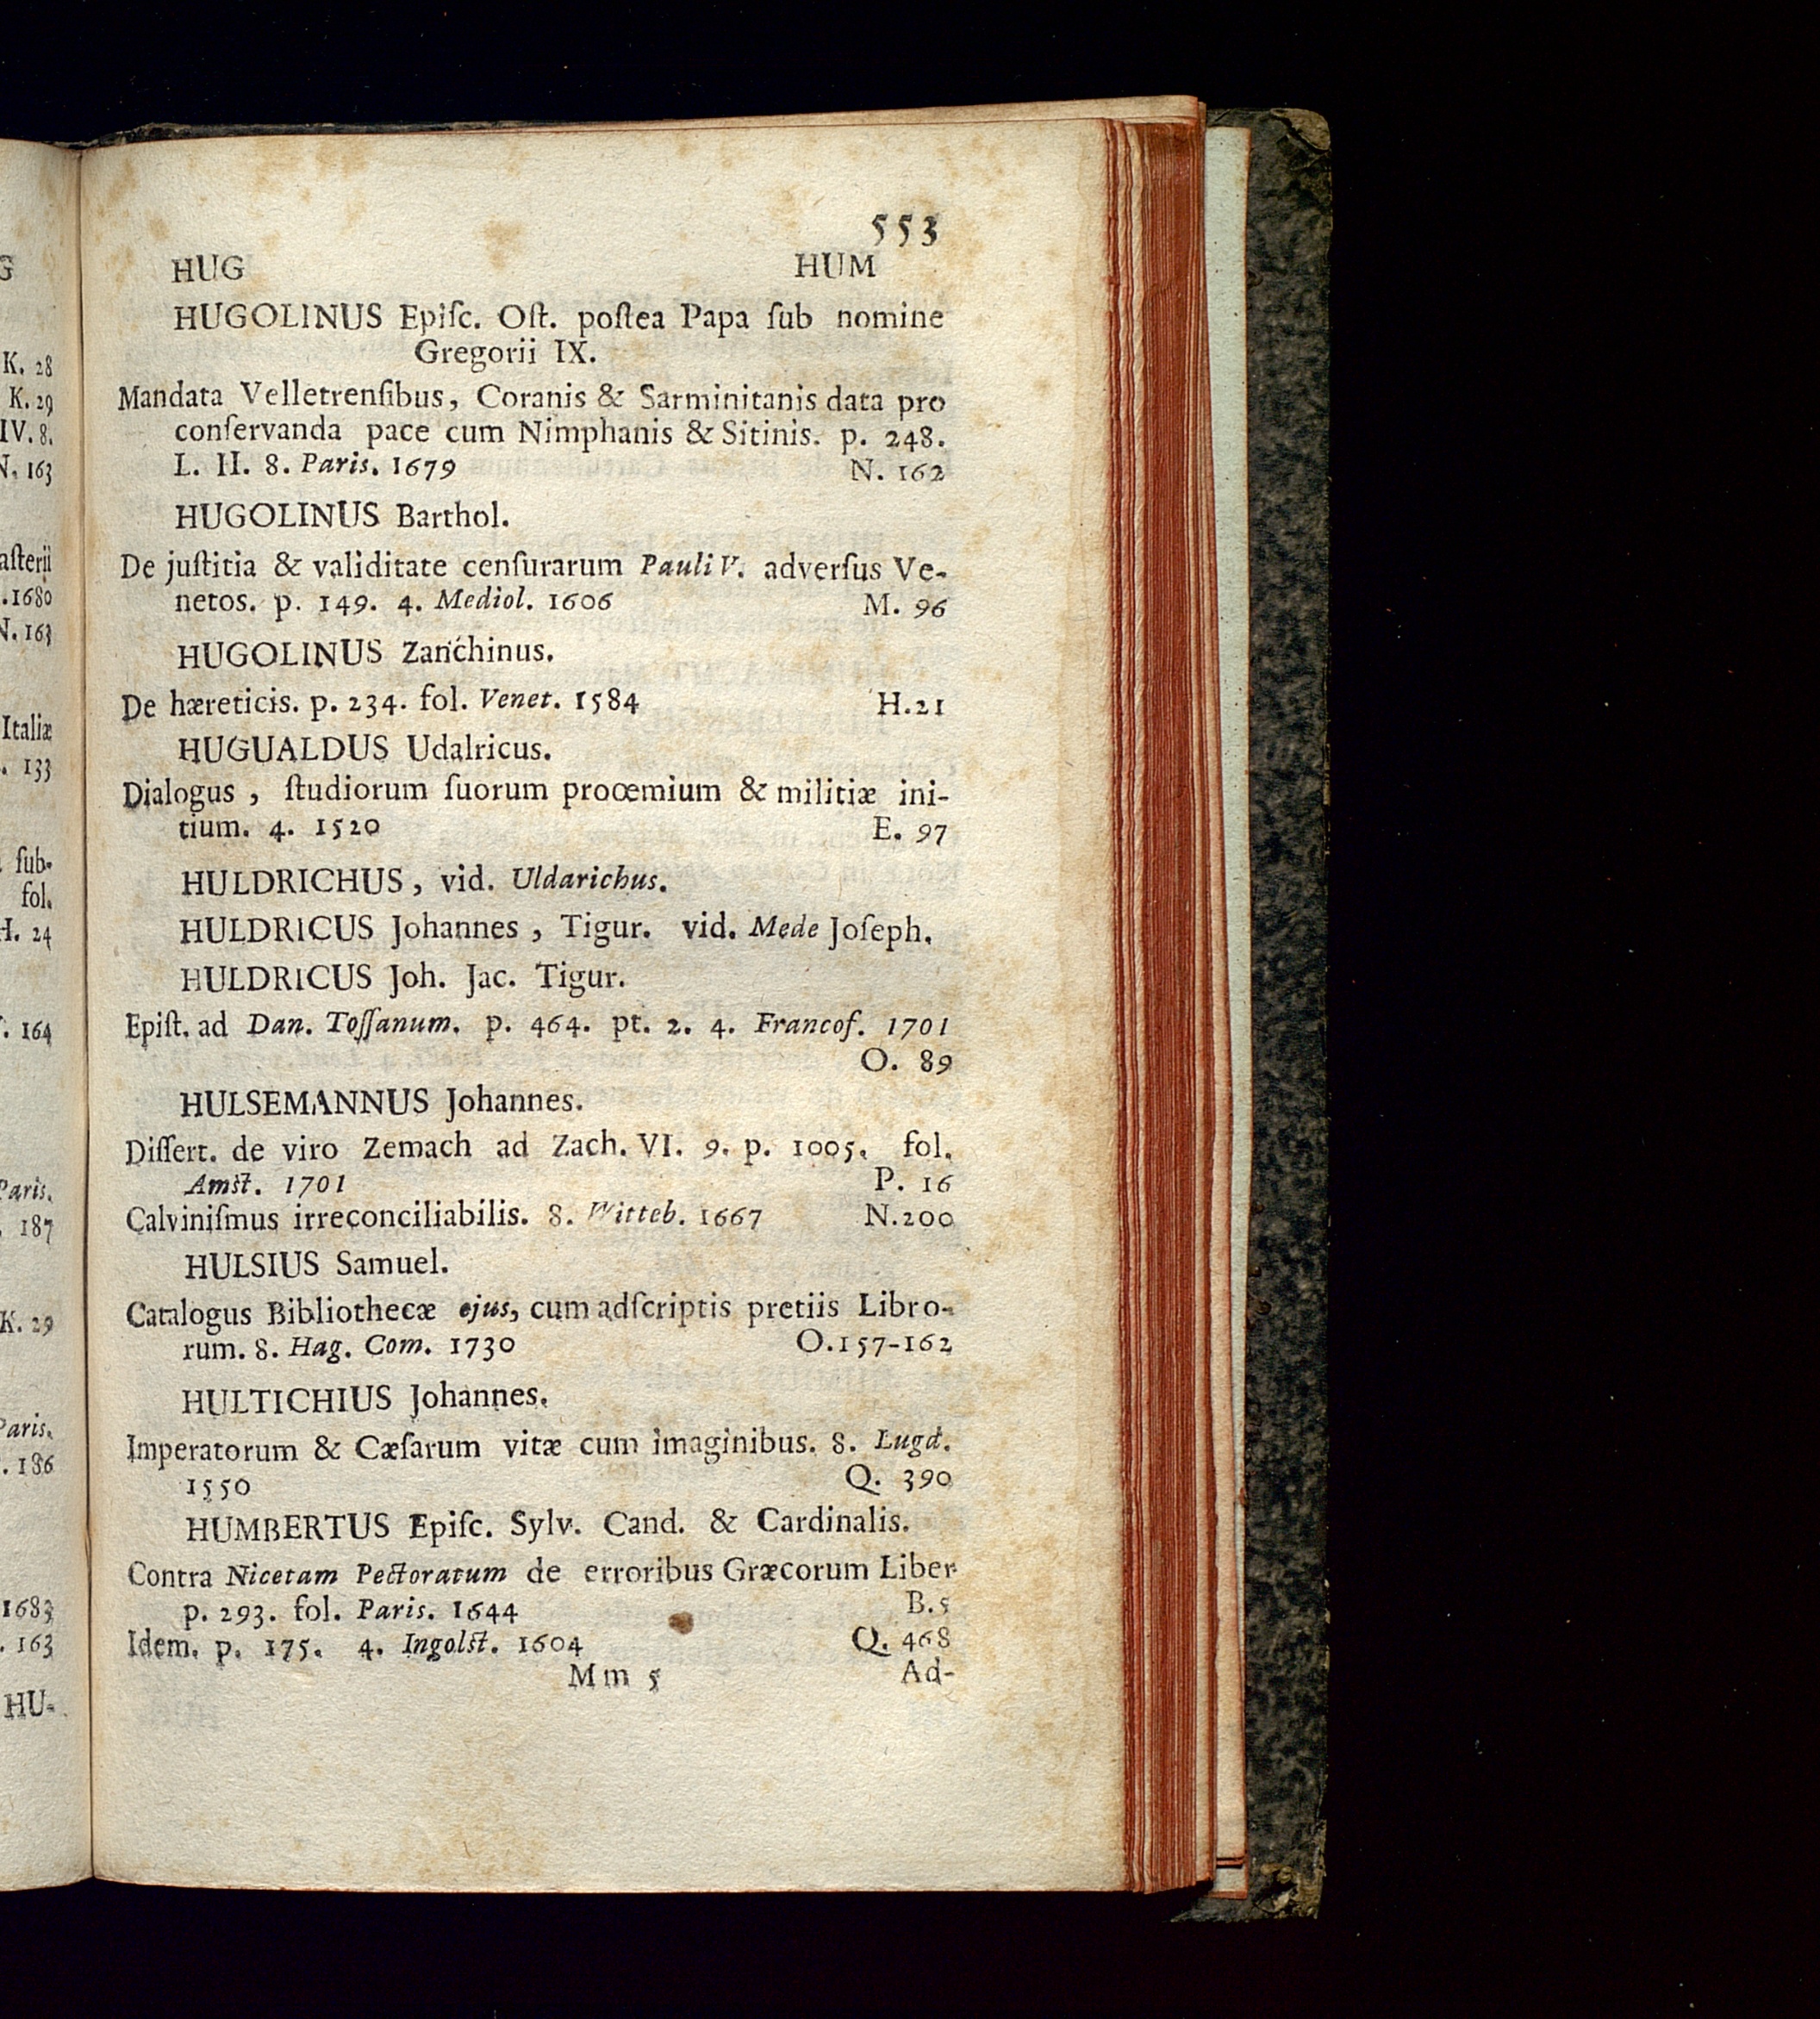 G
K. 28
K. 29
IV. 8.
N. 163
asterii
. 1680
N. 163
Italiæ
. 133
sub-
fol.
H. 24
. 164
Paris.
187
K. 29
Paris.
. 186
1683
. 163
HU-
553
HUG HUM
HUGOLINUS Episc. Ost. postea Papa sub nomine
Gregorii IX.
Mandata Velletrensibus, Coranis & Sarminitanis data pro
conservanda pace cum Nimphanis & Sitinis. p. 248.
L. II. 8. Paris. 1679 N. 162
HUGOLINUS Barthol.
De justitia & validitate censurarum Pauli V. adversus Ve-
netos. p. 149. 4. Mediol. 1606 M. 96
HUGOLINUS Zanchinus.
De hæreticis. p. 234. fol. Venet. 1584 H.21
HUGUALDUS Udalricus.
Dialogus, studiorum suorum proœmium & militiæ ini-
tium. 4. 1520 E. 97
HULDRICHUS, vid. Uldarichus.
HULDRICUS Johannes, Tigur. vid. Mede Joseph.
HULDRICUS Joh. Jac. Tigur.
Epist. ad Dan. Tossanum. p. 464. pt. 2. 4. Francof. 1701
O. 89
HULSEMANNUS Johannes.
Dissert. de viro Zemach ad Zach. VI. 9. p. 1005. fol.
Amst. 1701 P. 16
Calvinismus irreconciliabilis. 8. Witteb. 1667 N.200
HULSIUS Samuel.
Catalogus Bibliothecæ ejus, cum adscriptis pretiis Libro-
rum. 8. Hag. Com. 1730 O.157-162
HULTICHIUS Johannes.
Imperatorum & Cæsarum vitæ cum imaginibus. 8. Lugd.
1550 Q. 390
HUMBERTUS Episc. Sylv. Cand. & Cardinalis.
Contra Nicetam Pectoratum de erroribus Græcorum Liber
p. 293. fol. Paris. 1644 B.5
Idem. p. 175. 4. Ingolst. 1604 Q. 468
Mm 5 Ad-